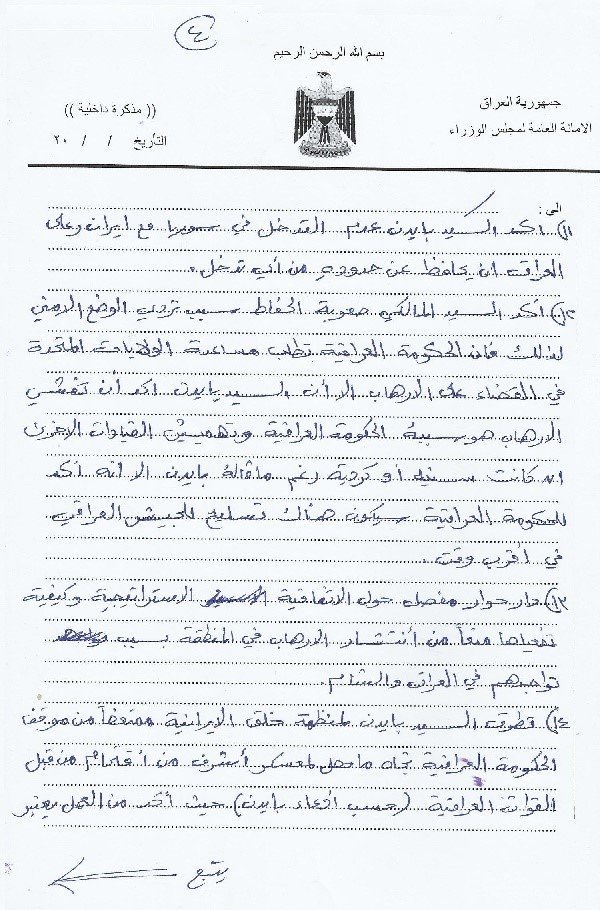 ٤
بسم الله الرحمن الرحيم
جمهورية العراق
(( مذكرة داخلية ))
الامانة العامة لمجلس الوزراء
التأريخ / / ٢٠
الى :
١١) اكد السيد بايدن عدم التدخل في سوريا مع ايران وعلى
العراق ان يحافظ عن حدوده من أي تدخل .
١٢) أكد السيد المالكي صعوبة الحفاظ سبب تردي الوضع الامني
لذلك فأن الحكومة العراقية تطلب مساعدة الولايات المتحدة
في القضاء على الارهاب الا أن السيد بايدن اكد أن تفشي
الارهاب هو سببه الحكومة العراقية وتهميش القيادات الاخرى
ان كانت سنية أو كردية رغم ماقاله بايدن الا انه أكد
للحكومة العراقية سيكون هناك تسليح للجيش العراقي
في أقرب وقت .
١٣) دار حوار مفصل حول الاتفاقية الاستراتيجية وكيفية
تفعيلها منعاً من أنتشار الارهاب في المنطقة بسبب
تواجدهم في العراق والشام .
١٤) تطرق السيد بايدن لمنظمة خلق الايرانية ممتعظاً من موقف
الحكومة العراقية تجاه ماحصل لمعسكر أشرف من أقتحام من قبل
القوات العراقية (بحسب أدعاء بايدن) حيث أكد من العمل يعتبر
يتبع